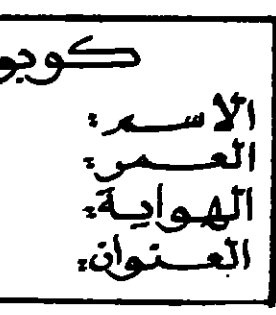 الاسم:
العمر:
الهواية:
العنوان: